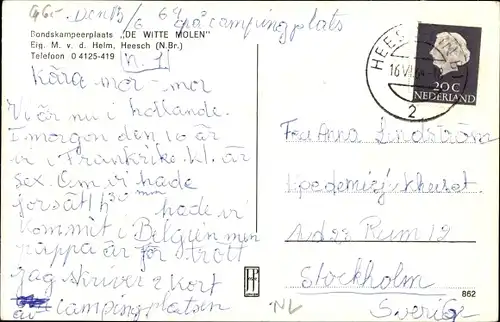 den 15/6 64 på campingplats
Bondskampeerplaats „DE WITTE MOLEN"
Eig. M. v. d. Helm, Heesch (N.Br.)
Telefoon 0 4125-419
N. 1
Kära mor-mor
Vi är nu i hollande.
I morgon den 16 är
vi i Frankrike. kl. är
sex. Om vi hade
forsätt 30 mm
hade vi
kommit i Belgien men
pappa är för trött
jag skriver 2 kort
campingplatsen
HEESCH (N.BR.)
16 VI
2
20 C
NEDERLAND
Fru Anna Lindström
Epedemisjukhuset
Rum 12
Stockholm
Sverige
862
NL